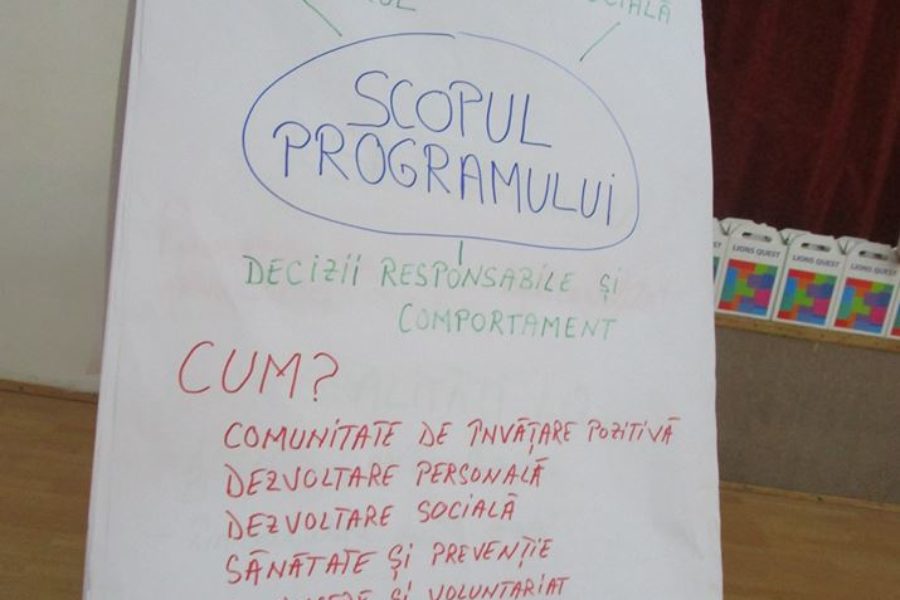 SCOPUL
PROGRAMULUI
DECIZII RESPONSABILE ȘI
COMPORTAMENT
CUM?
COMUNITATE DE ÎNVĂȚARE POZITIVĂ
DEZVOLTARE PERSONALĂ
DEZVOLTARE SOCIALĂ
SĂNĂTATE ȘI PREVENȚIE
ȘI VOLUNTARIAT
LIONS QUEST
LIONS QUEST
LIONS QUEST